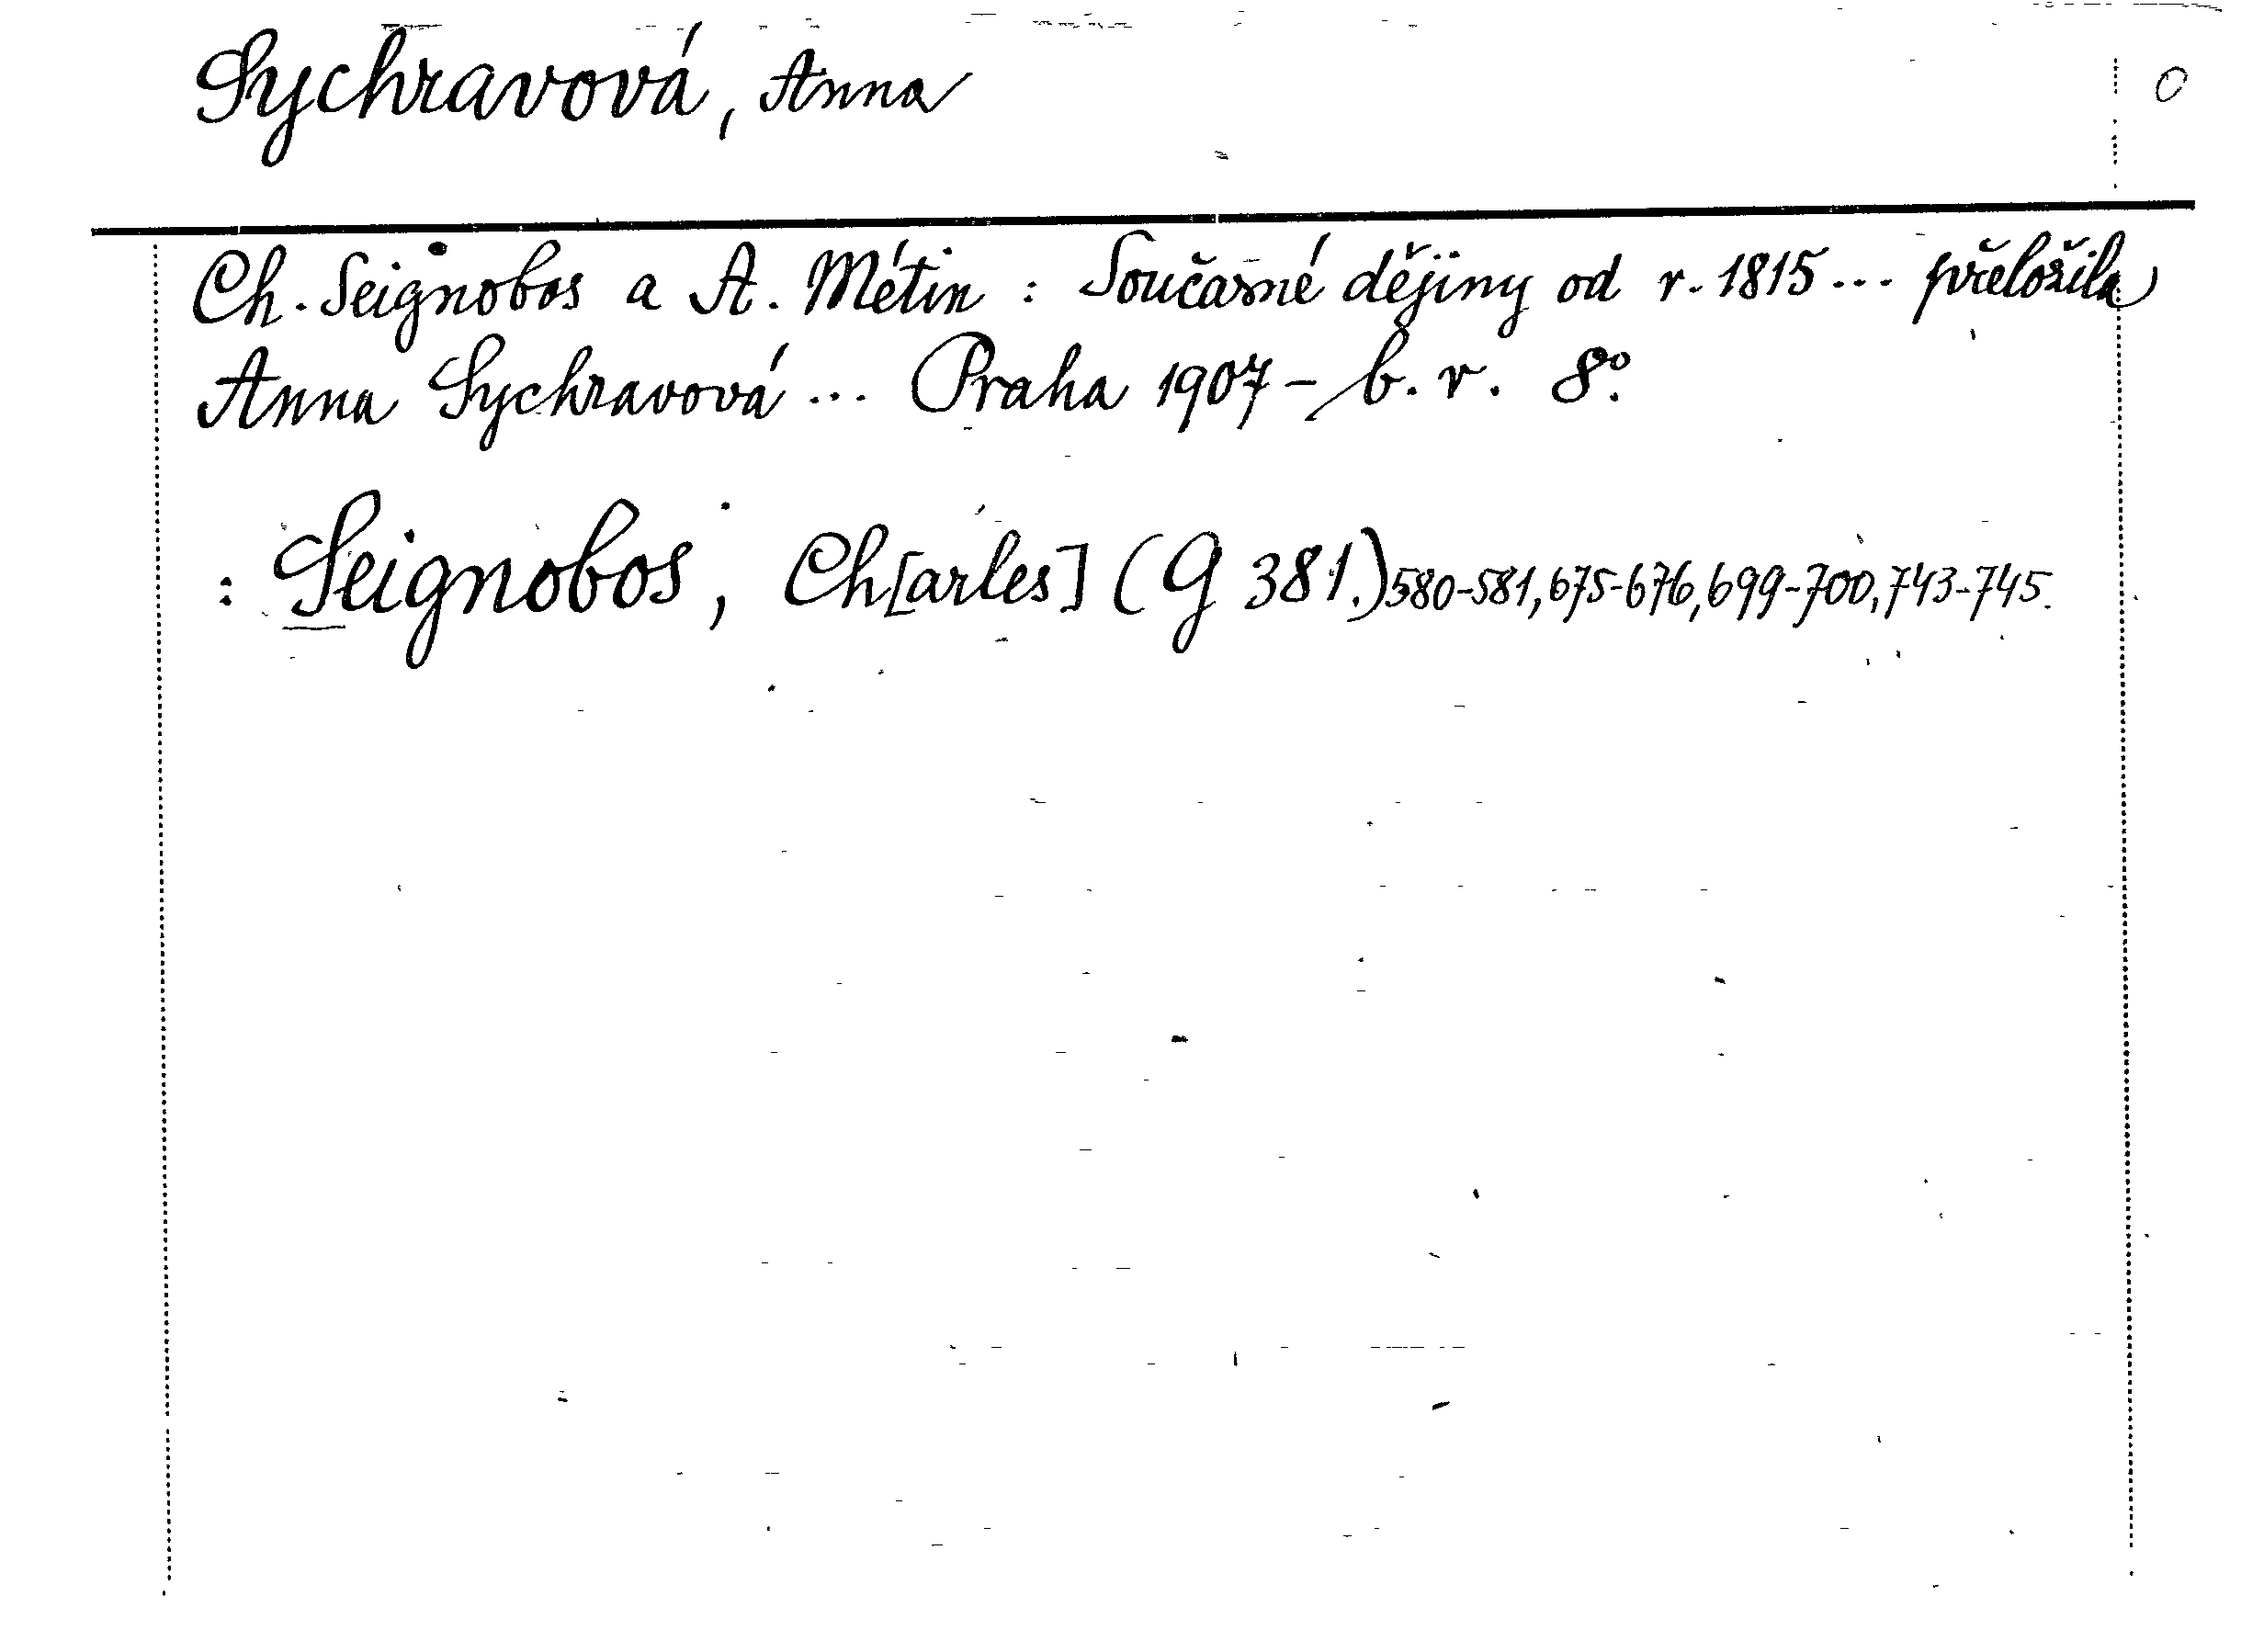 Sychravová, Anna
0
Ch. Seignobos a A. Métin : Současné dějiny od r. 1815 ... přeložila
Anna Sychravová ... Praha 1907 - b. r. 8°.
: Seignobos, Ch[arles] (G 381.) 580-581, 675-676, 699-700, 743-745.